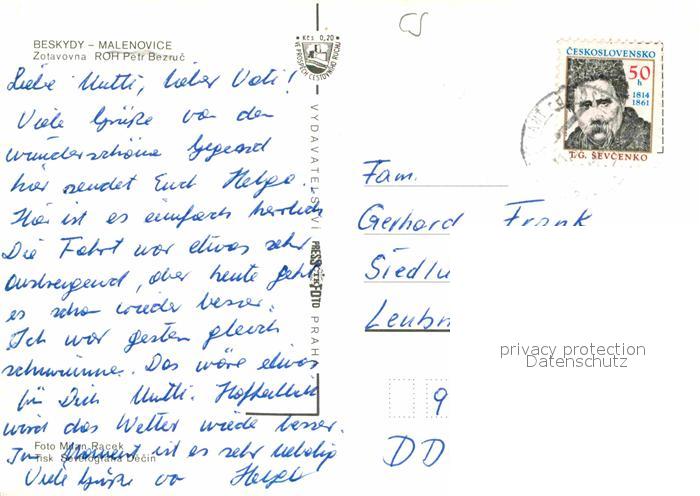 BESKYDY – MALENOVICE
Zotavovna ROH Petr Bezruč
Liebe Mutti, lieber Vati!
Viele Grüße von der
wunderschöne Gegend
hier sendet Euch Helga.
Hier ist es einfach herrlich
Die Fahrt war etwas sehr
anstrengend, aber heute geht
es schon wieder besser.
Ich war gestern gleich
schwimmen. Das wäre etwas
für Dich Mutti. Hoffentlich
wird das Wetter wieder besser.
Im Moment ist es sehr neblig
Viele Grüße von Helga
Foto Milan Racek
Tisk Severografia Děčín
Kčs 0,20
VE PROSPĚCH CESTOVNÍHO RUCHU
VYDAVATELSTVÍ PRESSFOTO PRAHA
ČS
ČESKOSLOVENSKO
50
h
1814
1861
T.G. ŠEVČENKO
Fam.
Gerhard Frank
Siedlu
Leubn
9
DD
privacy protection
Datenschutz